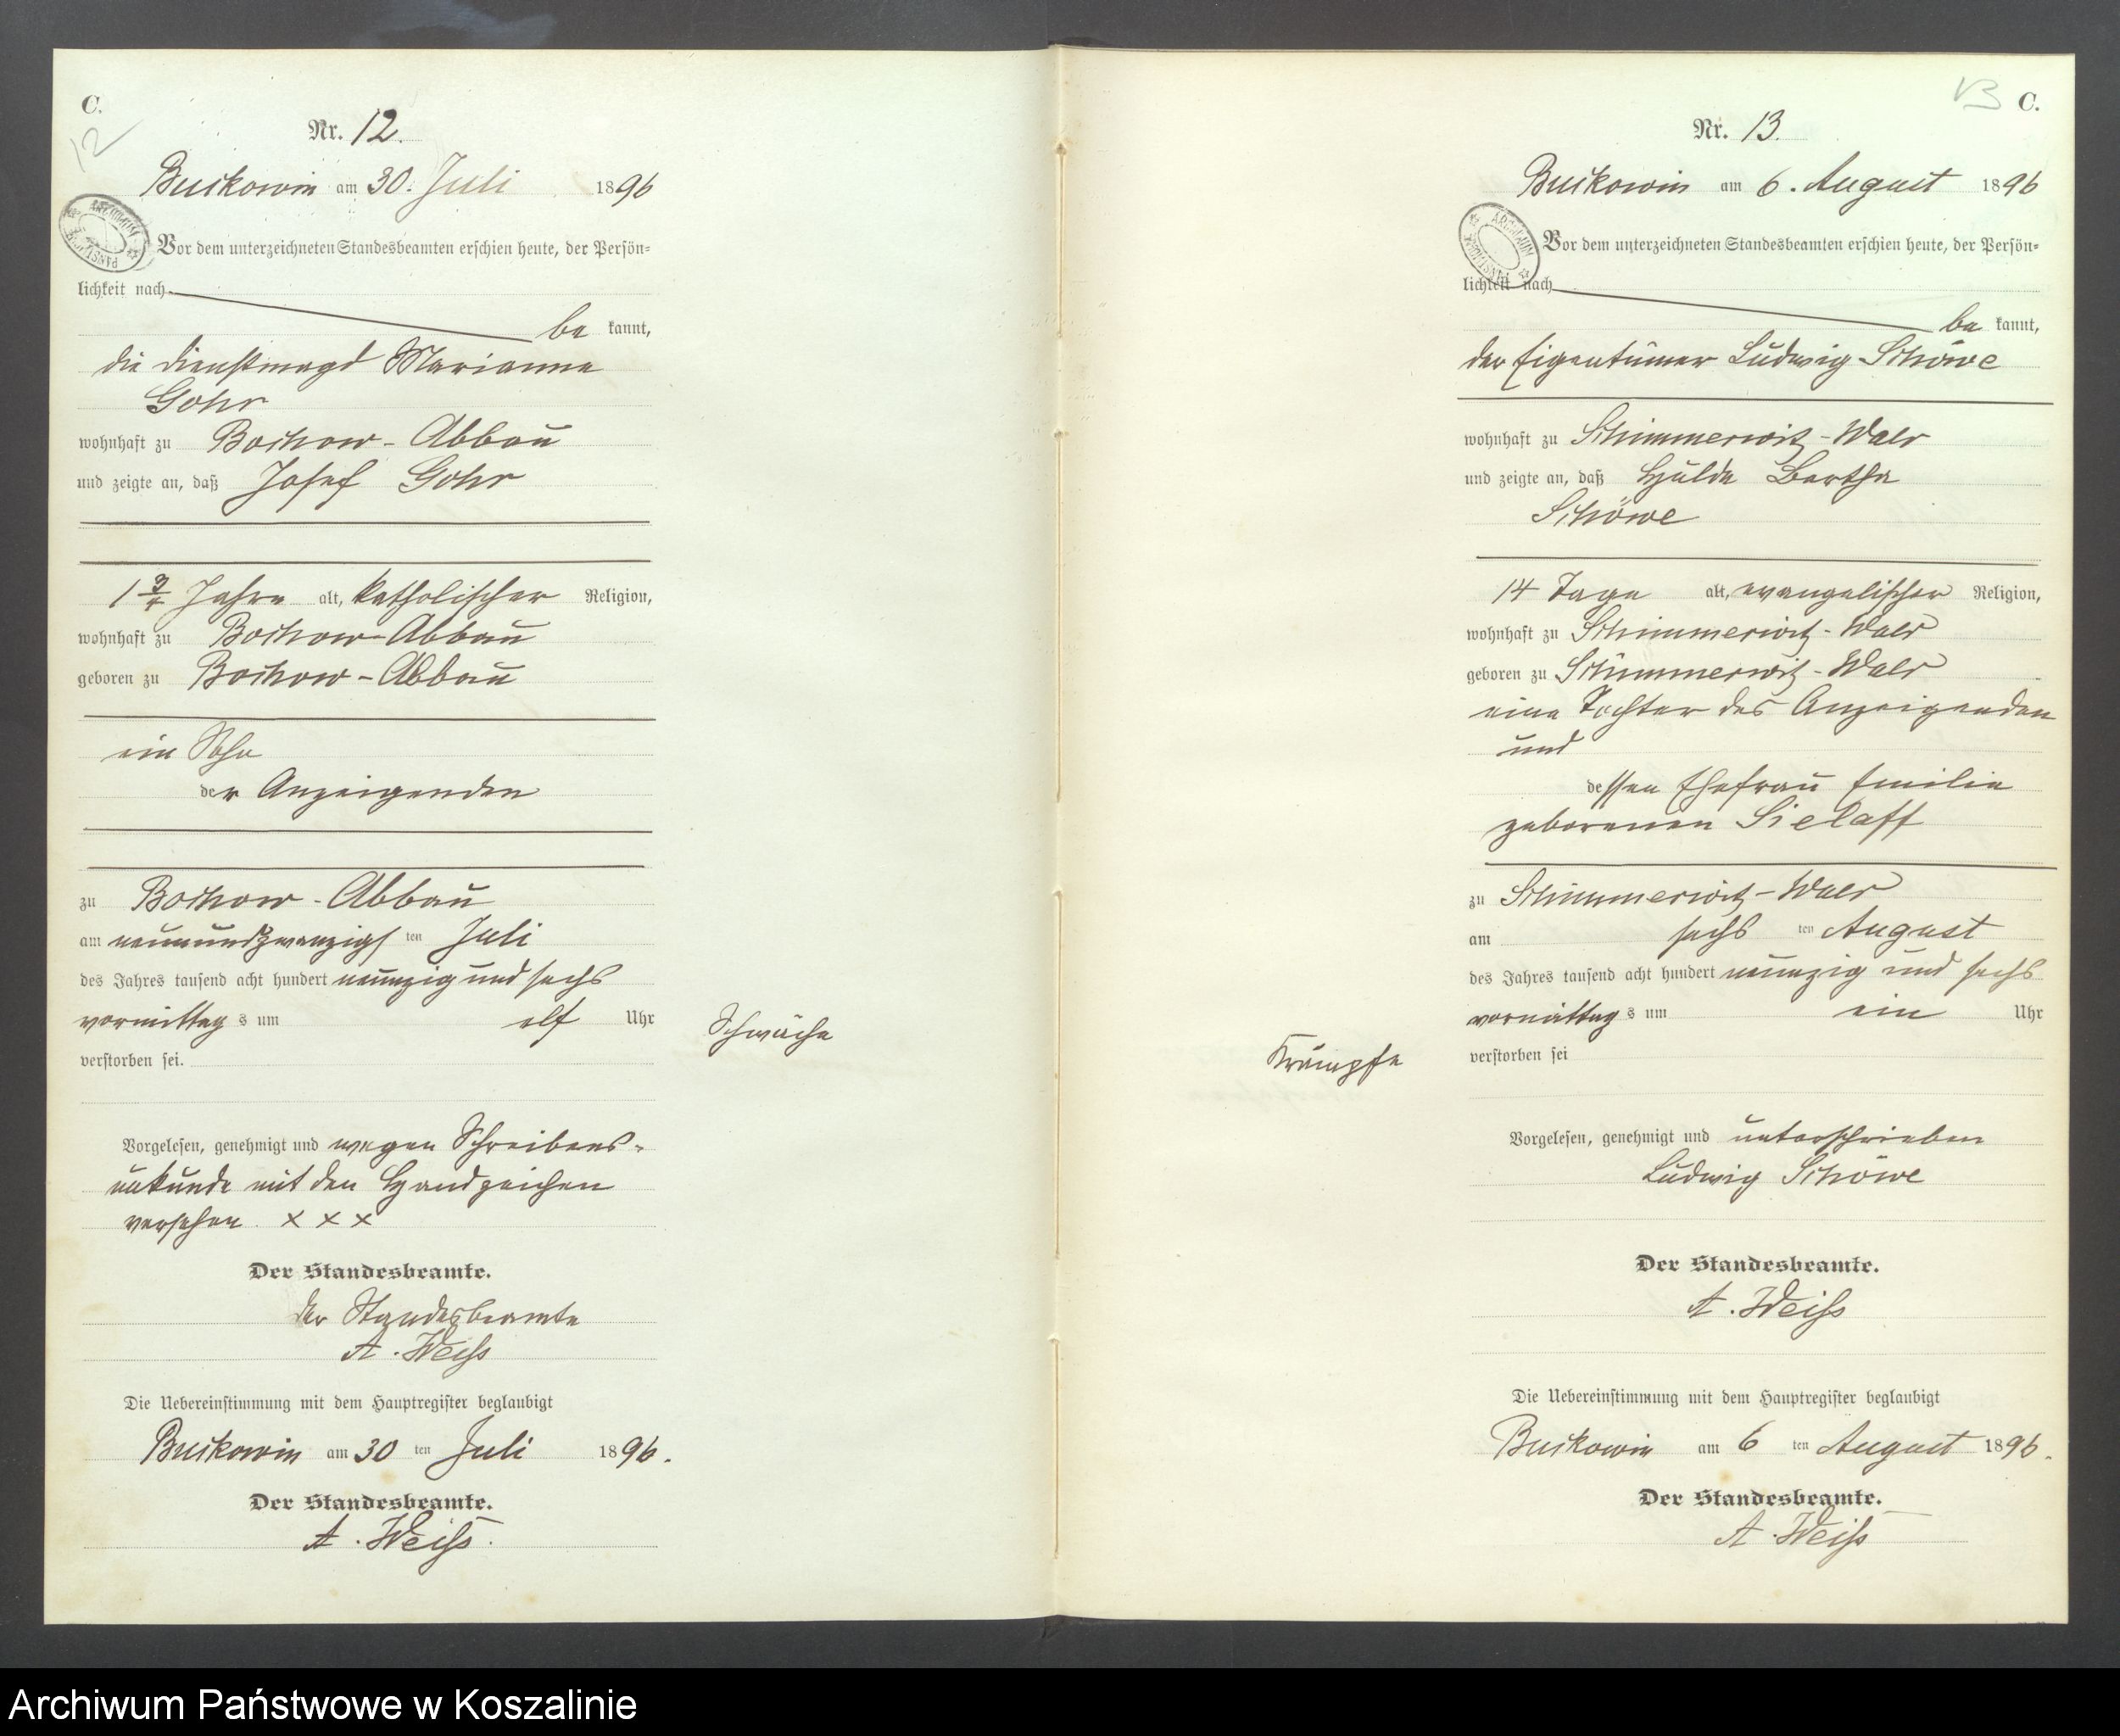 C.
12
Nr. 12.
Buckowin am 30. Juli 1896
Vor dem unterzeichneten Standesbeamten erschien heute, der Persön=
lichkeit nach
be kannt,
die Dienstmagd Marianna
Gohr
wohnhaft zu Bochow-Abbau
und zeigte an, daß Josef Gohr
1 3/4 Jahre alt, katholischer Religion,
wohnhaft zu Bochow-Abbau
geboren zu Bochow-Abbau
ein Sohn
der Anzeigenden
zu Bochow-Abbau
am neunundzwanzigs ten Juli
des Jahres tausend acht hundert neunzig und sechs
vormittag s um elf Uhr
verstorben sei.
Schwäche
Vorgelesen, genehmigt und wegen Schreibens-
unkunde mit den Handzeichen
versehen. x x x
Der Standesbeamte.
Der Standesbeamte
A. Weiss
Die Uebereinstimmung mit dem Hauptregister beglaubigt
Buckowin am 30 ten Juli 1896.
Der Standesbeamte.
A. Weiss.
13
C.
Nr. 13.
Buckowin am 6. August 1896
ARCHIWUM PAŃSTWOWE
Vor dem unterzeichneten Standesbeamten erschien heute, der Persön=
lichkeit nach
be kannt,
der Eigentümer Ludwig Schöwe
wohnhaft zu Schimmerwitz-Wald
und zeigte an, daß Hulda Bertha
Schöwe
14 Tage alt, evangelischer Religion,
wohnhaft zu Schimmerwitz-Wald
geboren zu Schimmerwitz-Wald
eine Tochter des Anzeigenden
und
dessen Ehefrau Emilie
geborenen Sielaff
zu Schimmerwitz-Wald
am sechs ten August
des Jahres tausend acht hundert neunzig und sechs
vormittag s um ein Uhr
verstorben sei
Krämpfe
Vorgelesen, genehmigt und unterschrieben
Ludwig Schöwe
Der Standesbeamte.
A. Weiss
Die Uebereinstimmung mit dem Hauptregister beglaubigt
Buckowin am 6 ten August 1896.
Der Standesbeamte.
A. Weiss
Archiwum Państwowe w Koszalinie